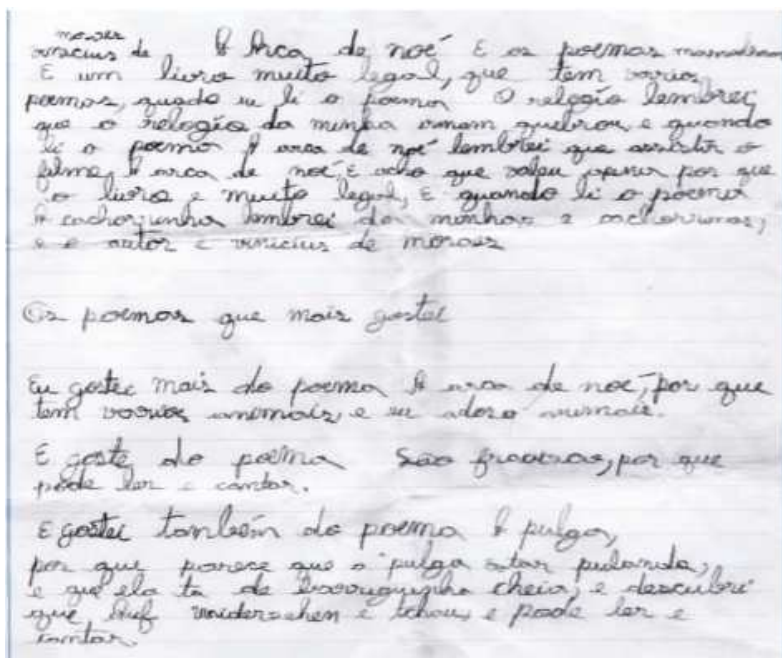 moraes
vinicius de A Arca de noé E os poemas
E um livro muito legal, que tem varios
poemas, quado eu li o poema O relogio lembrei
que o relogio da minha irmam quebrou, e quando
li o poema A arca de noé lembrei que assistir o
filme, A arca de noé, E acho que valeu apena por que
o livro e muito legal, E quando li o poema
A cachorrinha lembrei da minhas 2 cachorrinhas,
e o autor e vinicius de moraes
Os poemas que mais gostei
Eu gostei mais do poema A arca de noé, por que
tem varios animais, e eu adoro animais.
E goste do poema São fracisco, por que
pode ler e cantar.
E gostei também do poema A pulga,
por que parece que a pulga estar pulando,
e que ela ta de barriguinha cheia, e descubri
que Auf widersehen e tchau, e pode ler e
cantar.